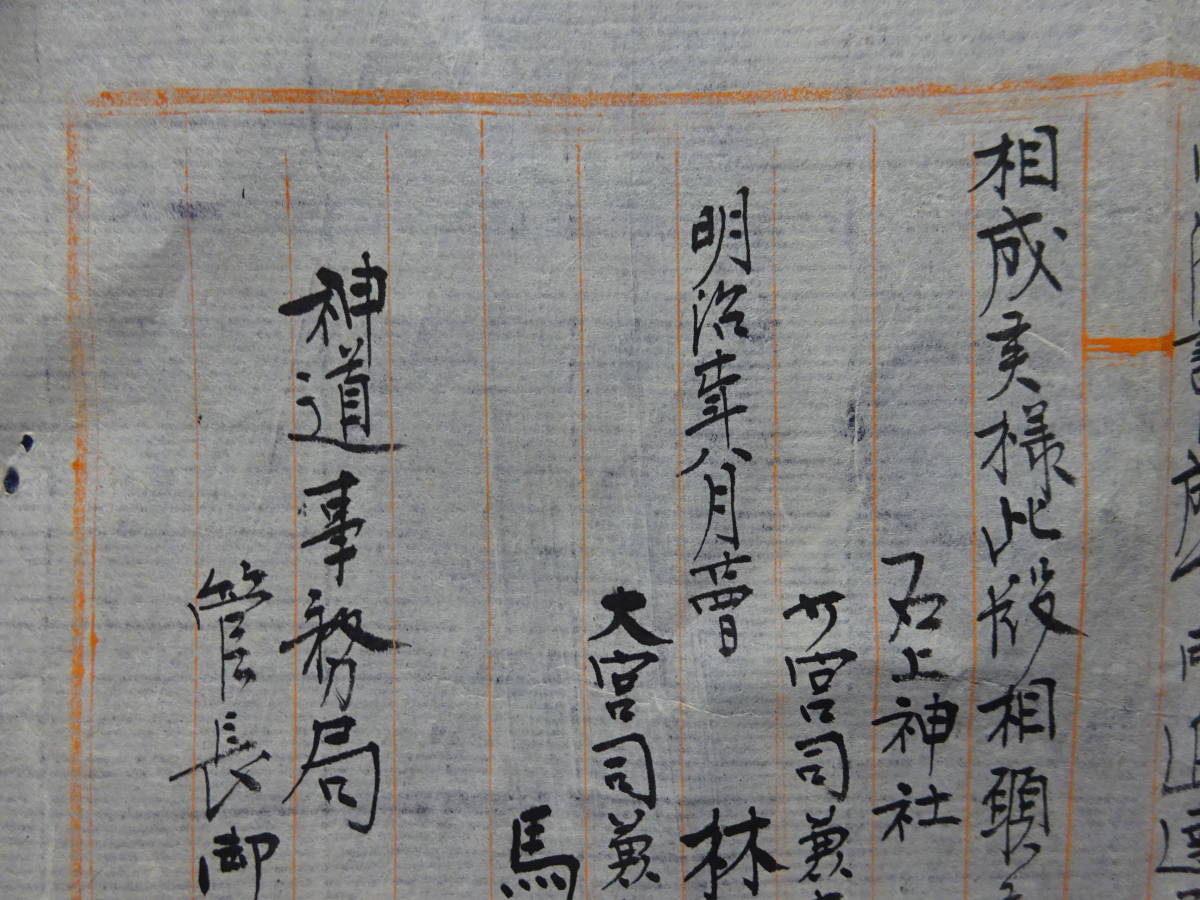 相成候様此段相願
石上神社
少宮司兼
林
明治十年八月廿四日
大宮司兼
馬
神道事務局
管長御